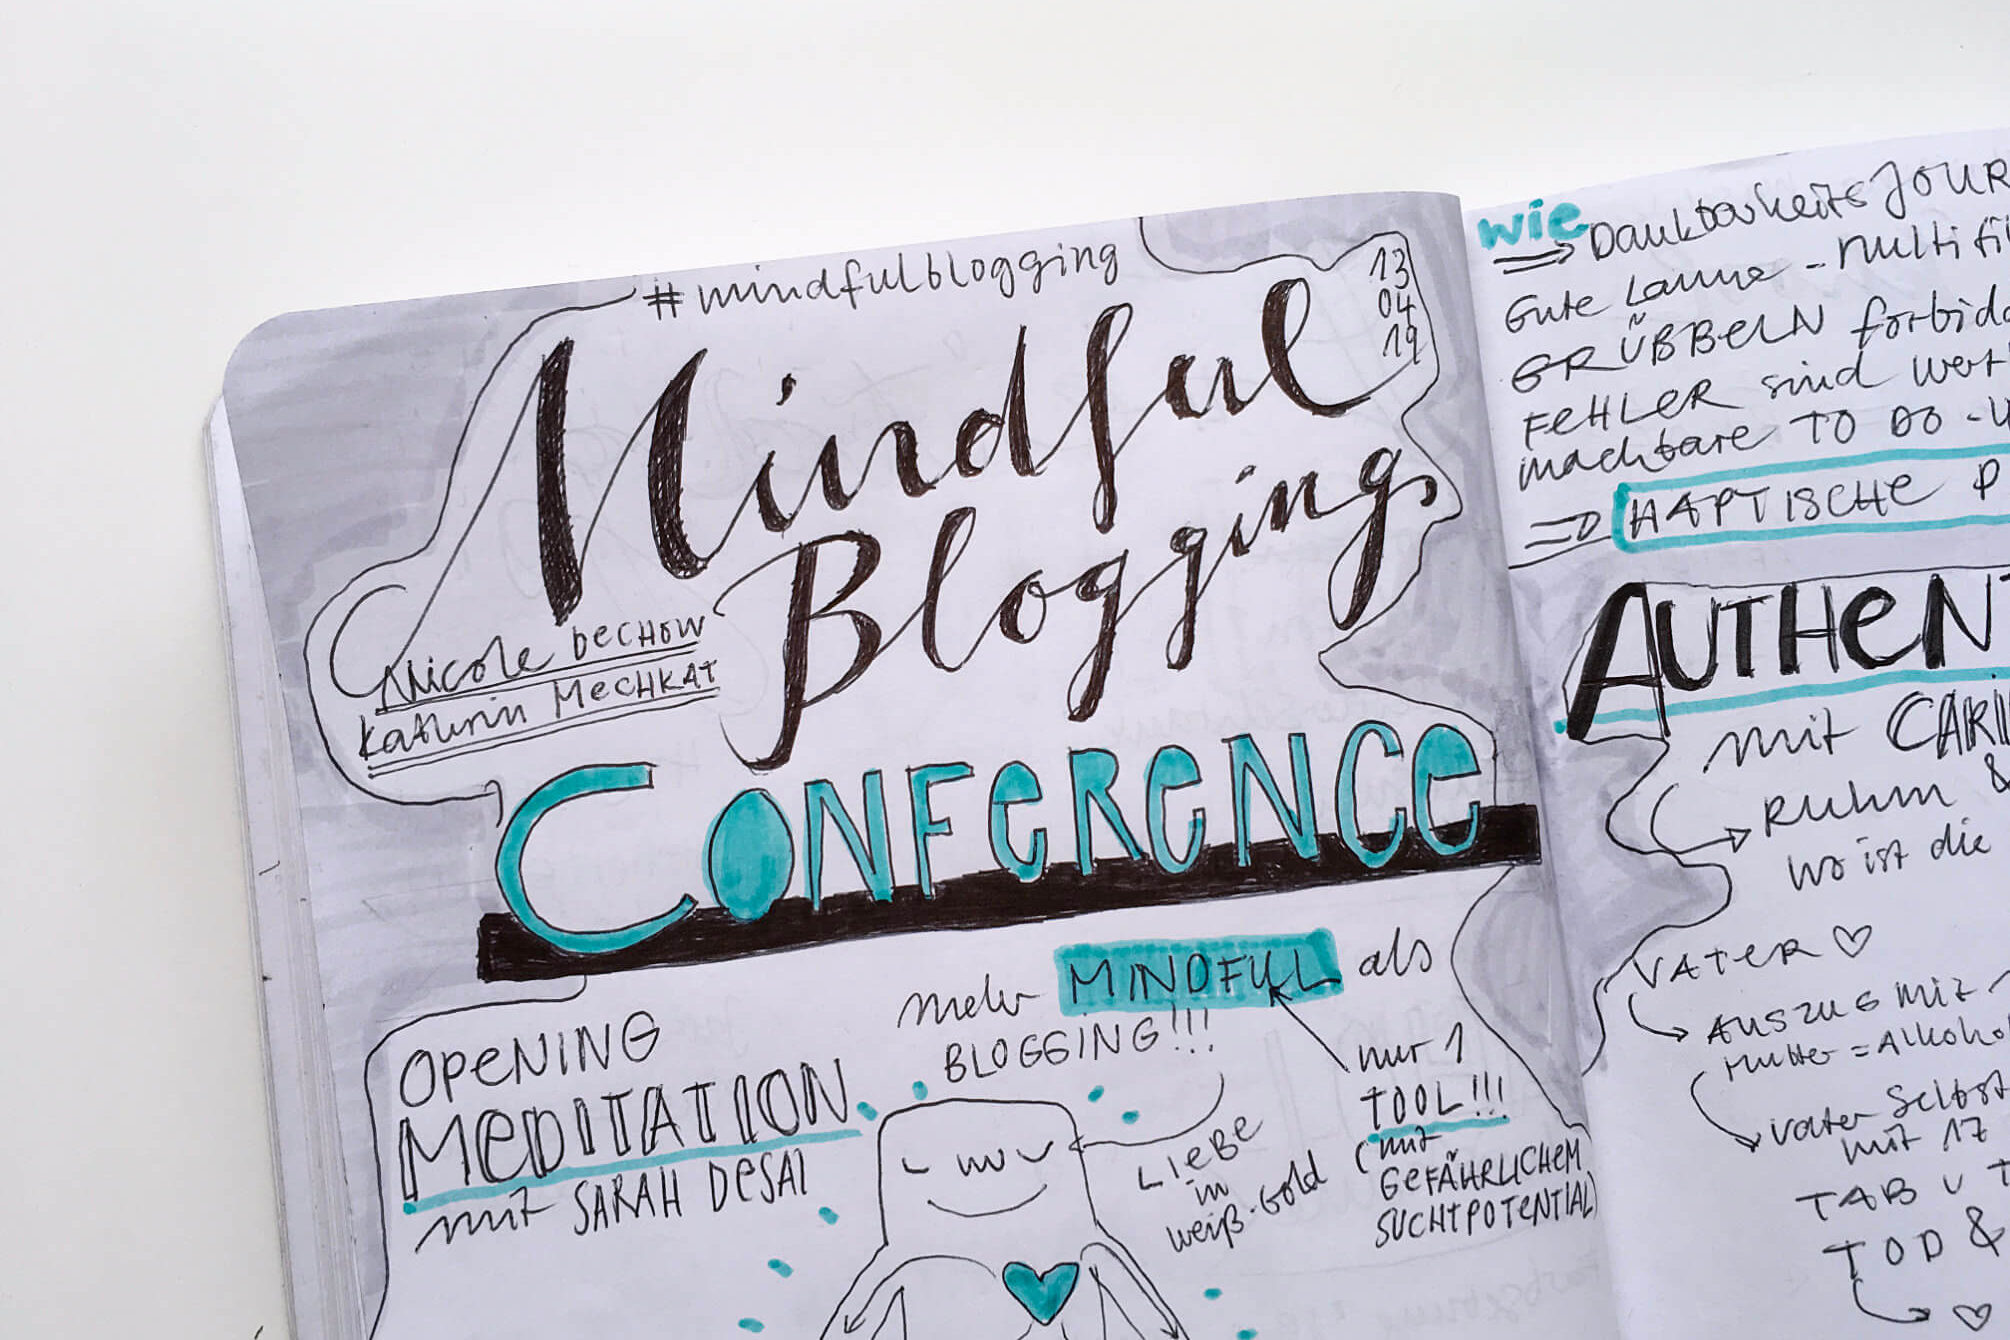 #mindfulblogging
13
04
19
Mindful
Blogging
Nicole BECHOW
Kathrin MECHKAT
CONFERENCE
mehr MINDFUL als
BLOGGING!!!
OPENING
MEDITATION
mit SARAH DESAI
nur 1
TOOL!!!
(mit
GEFÄHRLICHEM
SUCHTPOTENTIAL)
LIEBE
in
weiß-Gold
wie
⇒ DankbarkeitsJOUR
Gute Laune - multifil
GRÜBBELN forbid
FEHLER sind wert
machbare TO DO -
⇒ HAPTISCHE P
AUTHENT
mit CARI
RUHM &
wo ist die
VATER ♡
AUSZUG mit
Mutter = Alkohol
Vater Selbst
mit 17
TABU T
TOD &
♡